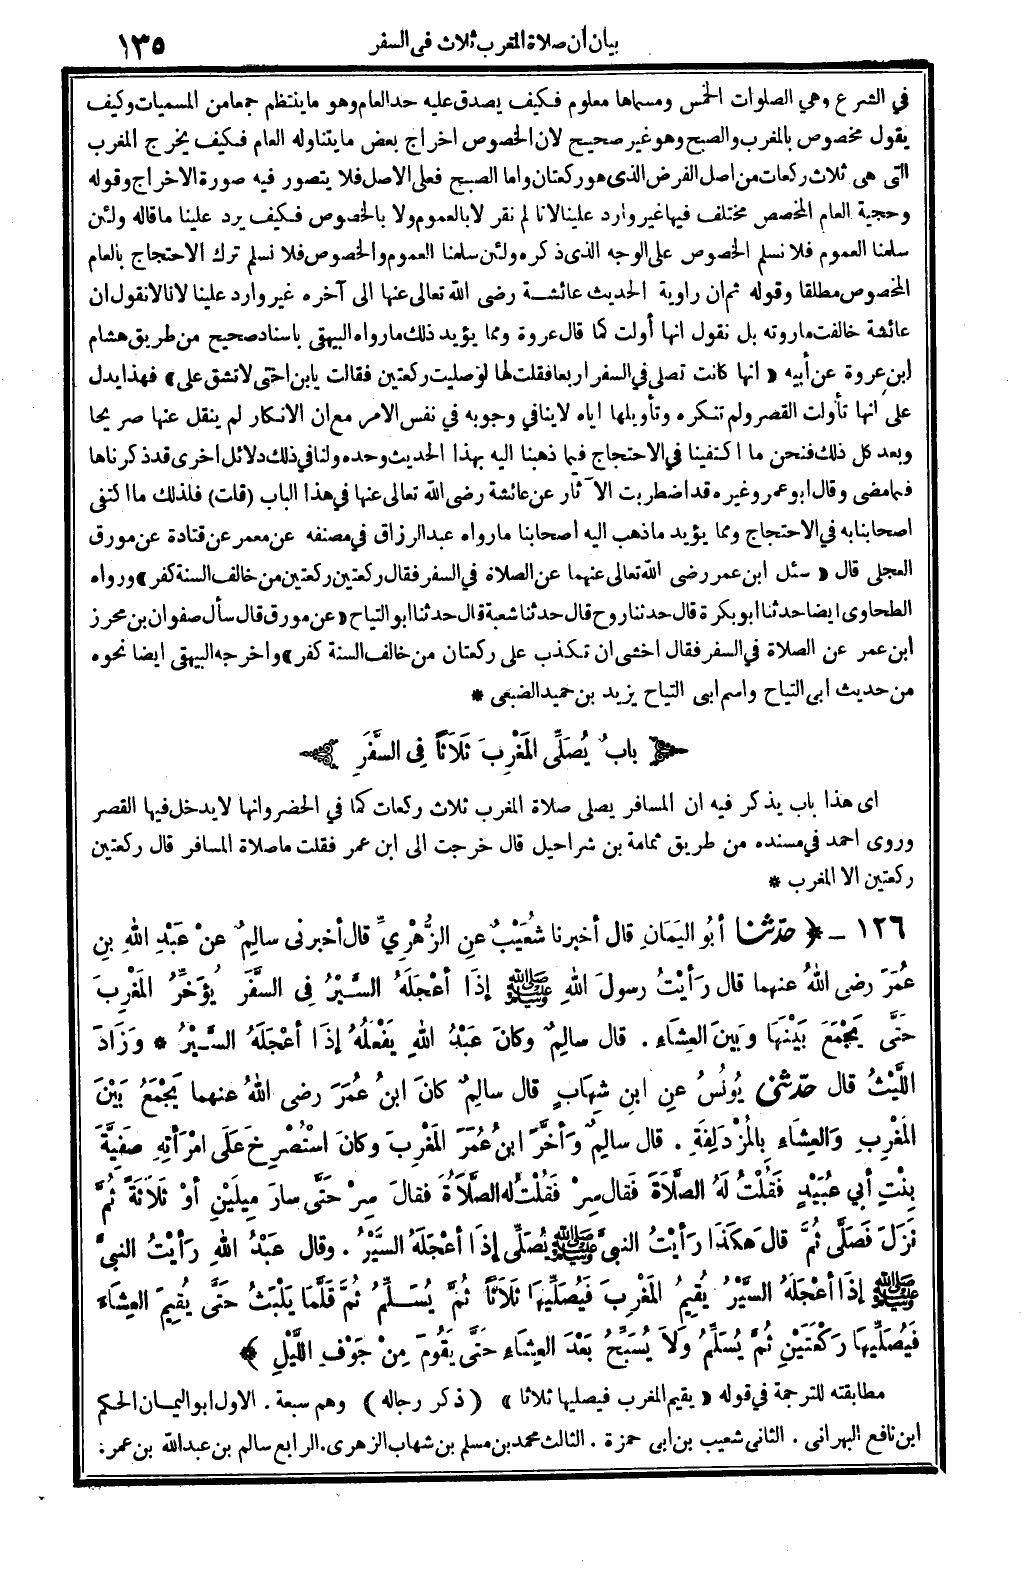 بيان أن صلاة المغرب ثلاث في السفر ١٣٥
في الشرع وهي الصلوات الخمس ومسماها معلوم فكيف يصدق عليه حد العام وهو ما ينتظم جمعا من المسميات وكيف
يقول مخصوص بالمغرب والصبح وهو غير صحيح لان الخصوص اخراج بعض ما يتناوله العام فكيف يخرج المغرب
التي هي ثلاث ركعات من اصل الفرض الذي هو ركعتان واما الصبح فعلى الاصل فلا يتصور فيه صورة الاخراج وقوله
وحجية العام المخصص مختلف فيها غير وارد علينا لانا لم نقر لا بالعموم ولا بالخصوص فكيف يرد علينا ما قاله ولئن
سلمنا العموم فلا نسلم الخصوص على الوجه الذي ذكره ولئن سلمنا العموم والخصوص فلا نسلم ترك الاحتجاج بالعام
المخصوص مطلقا وقوله ثم ان راوية الحديث عائشة رضى الله تعالى عنها الى آخره غير وارد علينا لانا لا نقول ان
عائشة خالفت ما روته بل نقول انها أولت كما قال عروة ومما يؤيد ذلك ما رواه البيهقي باسناد صحيح من طريق هشام
ابن عروة عن أبيه « انها كانت تصلى في السفر اربعا فقلت لها لو صليت ركعتين فقالت يا بن اختى لا تشق على » فهذا يدل
على انها تأولت القصر ولم تنكره وتأويلها اياه لا ينافي وجوبه في نفس الامر مع ان الانكار لم ينقل عنها صريحا
وبعد كل ذلك فنحن ما اكتفينا في الاحتجاج فيما ذهبنا اليه بهذا الحديث وحده ولنا في ذلك دلائل اخرى قد ذكرناها
فيما مضى وقال ابو عمر وغيره قد اضطربت الآثار عن عائشة رضى الله تعالى عنها في هذا الباب (قلت) فلذلك ما اكتفى
اصحابنا به في الاحتجاج ومما يؤيد ما ذهب اليه اصحابنا ما رواه عبد الرزاق في مصنفه عن معمر عن قتادة عن مورق
العجلى قال « سئل ابن عمر رضى الله تعالى عنهما عن الصلاة في السفر فقال ركعتين ركعتين من خالف السنة كفر » ورواه
الطحاوى ايضا حدثنا ابو بكرة قال حدثنا روح قال حدثنا شعبة قال حدثنا ابو التياح « عن مورق قال سأل صفوان بن محرز
ابن عمر عن الصلاة في السفر فقال اخشى ان تكذب على ركعتان من خالف السنة كفر » واخرجه البيهقي ايضا نحوه
من حديث ابى التياح واسم ابى التياح يزيد بن حميد الضبعى *
بابٌ يُصَلِّى المَغْرِبَ ثَلَاثًا فِى السَّفَرِ
اى هذا باب يذكر فيه ان المسافر يصلى صلاة المغرب ثلاث ركعات كما في الحضر وانها لا يدخل فيها القصر
وروى احمد في مسنده من طريق ثمامة بن شراحيل قال خرجت الى ابن عمر فقلت ما صلاة المسافر قال ركعتين
ركعتين الا المغرب *
١٢٦ ــ ﴿ حَدَّثَنا أبُو اليَمَانِ قال أخبرنا شُعَيْبٌ عنِ الزُّهْرِيِّ قال أخبرنى سالِمٌ عنْ عَبْدِ اللهِ بنِ
عُمَرَ رضى اللهُ عنهما قال رَأيْتُ رسولَ اللهِ ﷺ إذَا أعْجَلَهُ السَّيْرُ فِى السَّفَرِ يُؤَخِّرُ المَغْرِبَ
حَتَّى يَجْمَعَ بَيْنَهَا وبَيْنَ العِشَاءِ . قال سالِمٌ وكانَ عَبْدُ اللهِ يَفْعَلُهُ إذَا أعْجَلَهُ السَّيْرُ * وزَادَ
اللَّيْثُ قال حدَّثنى يُونُسُ عنِ ابنِ شِهَابٍ قال سالِمٌ كانَ ابنُ عُمَرَ رضى اللهُ عنهما يَجْمَعُ بَيْنَ
المَغْرِبِ والعِشَاءِ بِالمُزْدَلِفَةِ . قال سالِمٌ وَأخَّرَ ابنُ عُمَرَ المَغْرِبَ وكانَ اسْتُصْرِخَ عَلَى امْرَأتِهِ صَفِيَّةَ
بِنْتِ أبي عُبَيْدٍ فَقُلْتُ لَهُ الصَّلَاةَ فَقال سِرْ فَقُلْتُ له الصَّلَاةُ فَقالَ سِرْ حَتَّى سارَ مِيلَيْنِ أوْ ثَلَاثَةً ثُمَّ
نَزَلَ فَصَلَّى ثُمَّ قالَ هكَذَا رَأيْتُ النبيَّ ﷺ يُصَلِّى إذَا أعْجَلَهُ السَّيْرُ . وقال عَبْدُ اللهِ رَأيْتُ النبيَّ
ﷺ إذَا أعْجَلَهُ السَّيْرُ يُقِيمُ المَغْرِبَ فَيُصَلِّيهَا ثَلَاثًا ثُمَّ يُسَلِّمُ ثُمَّ قَلَّمَا يَلْبَثُ حَتَّى يُقِيمَ العِشَاءَ
فَيُصَلِّيهَا رَكْعَتَيْنِ ثُمَّ يُسَلِّمُ ولَا يُسَبِّحُ بَعْدَ العِشَاءِ حَتَّى يَقُومَ مِنْ جَوْفِ اللَّيْلِ ﴾
مطابقته للترجمة في قوله « يقيم المغرب فيصليها ثلاثا » (ذكر رجاله) وهم سبعة . الاول ابو اليمان الحكم
ابن نافع البهرانى . الثانى شعيب بن ابى حمزة . الثالث محمد بن مسلم بن شهاب الزهرى . الرابع سالم بن عبد الله بن عمر .